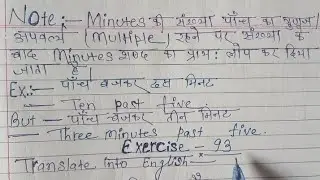 Note:- Minutes की संख्या पाँच का गुणज/
अपवर्त्य (Multiple) रहने पर संख्या के
बाद Minutes शब्द का प्रायः लोप कर दिया
जाता है।
Ex:- पाँच बजकर दस मिनट
- Ten past five
But - पाँच बजकर तीन मिनट
- Three minutes past five.
Exercise - 93
Translate into English:-